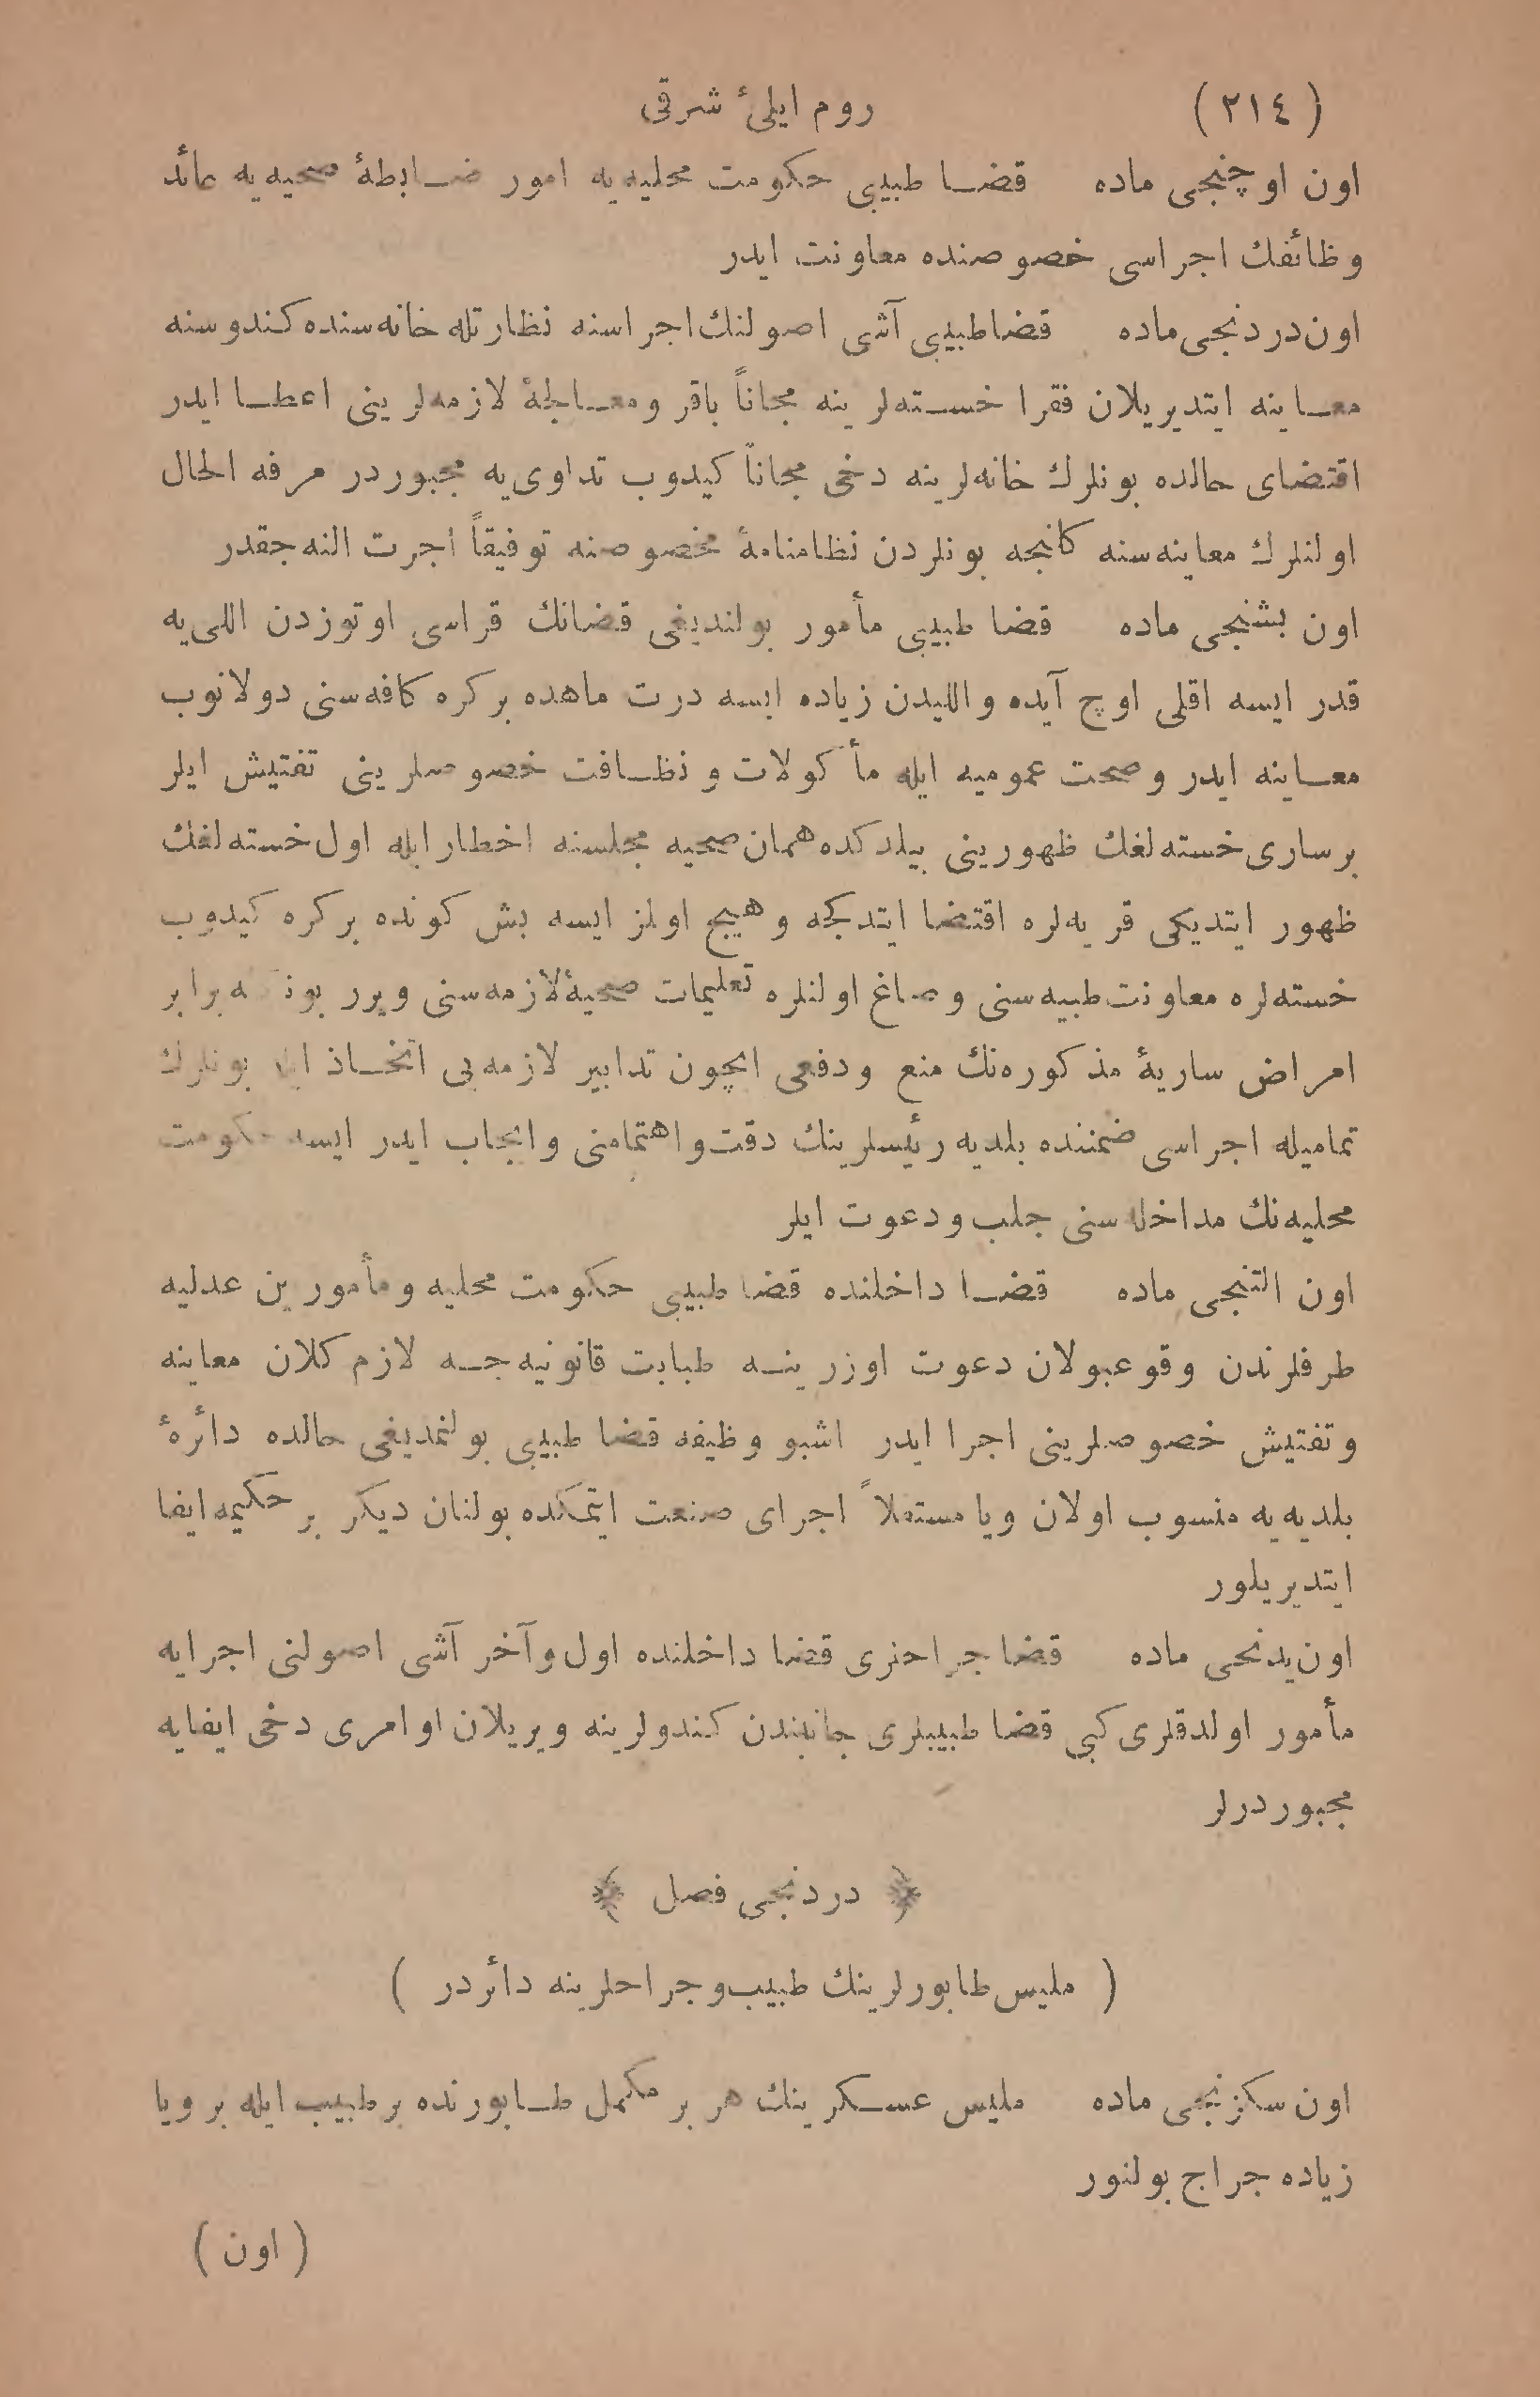 (٢١٤) روم ايلئ شرقى
اون اوچنجى ماده قضا طبيبى حكومت محليه‌يه امور ضابطهٔ صحيه‌يه عائد
وظائفك اجراسى خصوصنده معاونت ايدر
اون دردنجى ماده قضا طبيبى آشى اصولنك اجراسنه نظارتله خانه‌سنده كندوسنه
معاينه ايتديريلان فقرا خسته‌لرينه مجاناً باقر ومعالجهٔ لازمه‌لرينى اعطا ايدر
اقتضاى حالده بونلرك خانه‌لرينه دخى مجاناً كيدوب تداوى‌يه مجبوردر مرفه الحال
اولنلرك معاينه‌سنه كلنجه بونلردن نظامنامهٔ مخصوصنه توفيقاً اجرت النه‌جقدر
اون بشنجى ماده قضا طبيبى مأمور بولنديغى قضانك قراسى اوتوزدن اللى‌يه
قدر ايسه اقلى اوچ آيده واللیدن زياده ايسه درت ماهده بركره كافه‌سنى دولانوب
معاينه ايدر وصحت عموميه ايله مأكولات و نظافت خصوصلرينى تفتيش ايلر
برسارى خسته‌لغك ظهورينى بيلدكده همان صحيه مجلسنه اخطار ايله اول خسته‌لغك
ظهور ايتديكى قريه‌لره اقتضا ايتدكجه وهيچ اولمز ايسه بش كونده بركره كيدوب
خسته‌لره معاونت طبيه‌سنى وصاغ اولنلره تعليمات صحيهٔ لازمه‌سنى ويرر برابر
امراض ساريهٔ مذكوره‌نك منع ودفعى ايچون تدابير لازمه‌يى اتخاذ بونلرك
تماميله اجراسى ضمننده بلديه رئيسلرينك دقت واهتمامنى وايجاب ايدر ايسه حكومت
محليه‌نك مداخله‌سنى جلب ودعوت ايلر
اون التنجى ماده قضا داخلنده قضا طبيبى حكومت محليه ومأمورين عدليه
طرفلرندن وقوعبولان دعوت اوزرينه طبابت قانونيه‌جه لازم كلان معاينه
وتفتيش خصوصلرينى اجرا ايدر اشبو وظيفه قضا طبيبى بولنمديغى حالده دائرهٔ
بلديه‌يه منسوب اولان ويا مستقلاً اجراى صنعت ايتمكده بولنان ديكر بر حكيمه ايفا
ايتديريلور
اون يدنجى ماده قضا جراحلرى قضا داخلنده اول وآخر آشى اصولنى اجرايه
مأمور اولدقلرى كبى قضا طبيبلرى جانبندن كندولرينه ويريلان اوامرى دخى ايفايه
مجبوردرلر
﴿ دردنجى فصل ﴾
( مليس طابورلرينك طبيب وجراحلرينه دائردر )
اون سكزنجى ماده مليس عسكرينك هر بر مكمل طابورنده برطبيب ايله بر ويا
زياده جراح بولنور
( اون )